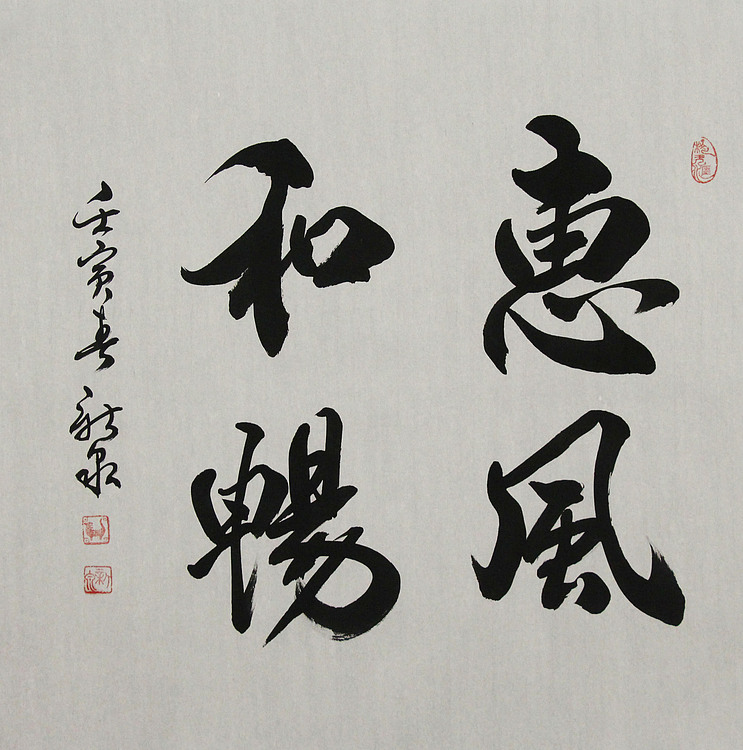 惠風
和暢
壬寅春 新泉